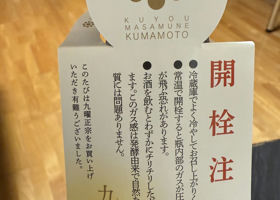 KUYOU
MASAMUNE
KUMAMOTO
開栓注
●冷蔵庫でよく冷やしてお召し上がりく
●常温で開栓すると瓶内部のガスが圧
が飛ぶ恐れがあります。
●お酒を飲むとわずかにチリチリした
ます。このガス感は発酵由来で自然な
質には問題ありません。
九
このたびは九曜正宗をお買い上げ
いただき有難うございました。